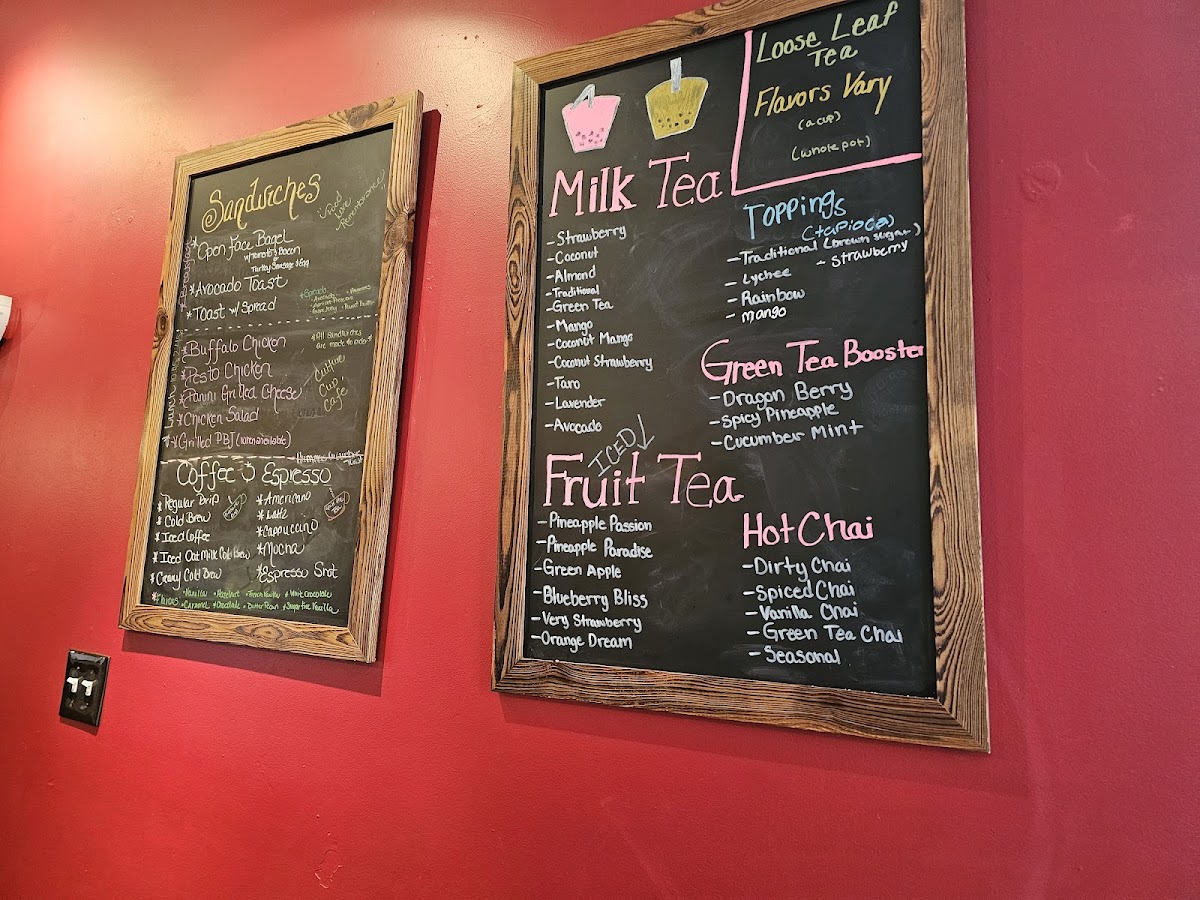 Sandwiches
"Food
Love
Remembrance"
Breakfast
*Open Face Bagel
w/tomato & Bacon
or
Turkey Sausage & Egg
*Avocado Toast
*Toast w/ Spread
*Spreads
*Buffalo Chicken
*Pesto Chicken
*Panini Grilled Cheese
*Chicken Salad
*Grilled PBJ
*All Sandwiches
are made to order*
Culture
Cup
Cafe
Coffee & Espresso
*Regular Drip
*Cold Brew
*Iced Coffee
*Iced Oat Milk Cold Brew
*Creamy Cold Brew
*Americano
*Latte
*Cappuccino
*Mocha
*Espresso Shot
*Flavors
•Vanilla •Hazelnut •French Vanilla •White Chocolate
•Caramel •Chocolate •Butter Pecan •Sugar Free Vanilla
Loose Leaf
Tea
Flavors Vary
(a cup)
(whole pot)
Milk Tea
-Strawberry
-Coconut
-Almond
-Traditional
-Green Tea
-Mango
-Coconut Mango
-Coconut Strawberry
-Taro
-Lavender
-Avocado
Toppings
(tapioca)
-Traditional (brown sugar)
-Lychee
-Strawberry
-Rainbow
-mango
Green Tea Booster
-Dragon Berry
-Spicy Pineapple
-Cucumber Mint
ICED
Fruit Tea
-Pineapple Passion
-Pineapple Paradise
-Green Apple
-Blueberry Bliss
-Very Strawberry
-Orange Dream
Hot Chai
-Dirty Chai
-Spiced Chai
-Vanilla Chai
-Green Tea Chai
-Seasonal